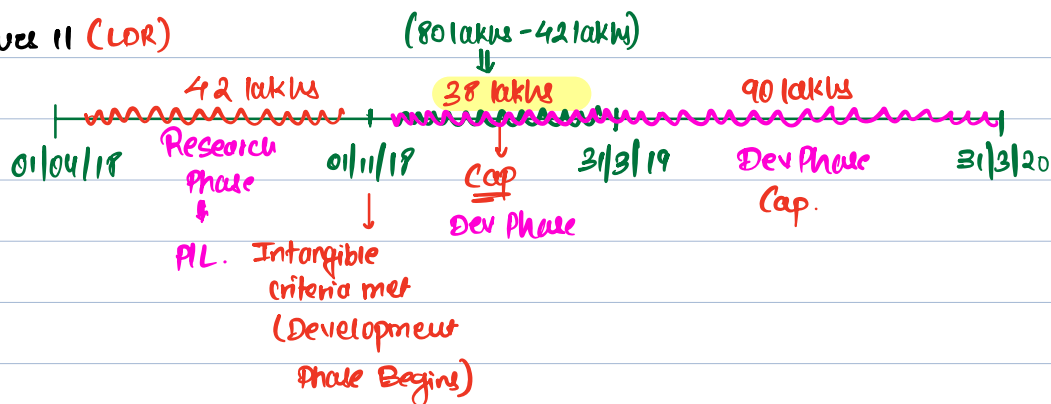 11 (LDR)
(80 lakhs - 42 lakhs)
42 lakhs
38 lakhs
90 lakhs
01/04/18
Research
Phase
P/L.
01/11/18
Intangible
criteria met
(Development
Phase Begins)
Cap
Dev Phase
31/3/19
Dev Phase
Cap.
31/3/20